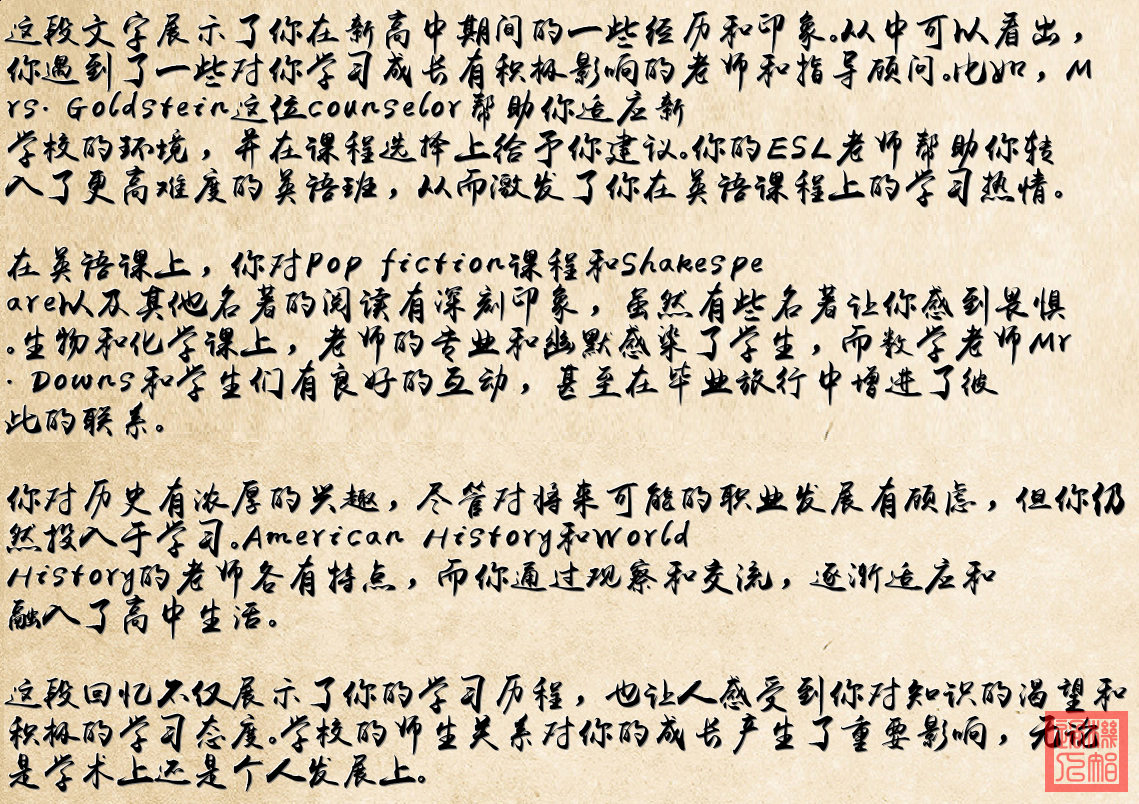 这段文字展示了你在新高中期间的一些经历和印象。从中可以看出，
你遇到了一些对你学习成长有积极影响的老师和指导顾问。比如，M
rs. Goldstein这位counselor帮助你适应新
学校的环境，并在课程选择上给予你建议。你的ESL老师帮助你转
入了更高难度的英语班，从而激发了你在英语课程上的学习热情。
在英语课上，你对Pop fiction课程和Shakespe
are以及其他名著的阅读有深刻印象，虽然有些名著让你感到畏惧
。生物和化学课上，老师的专业和幽默感染了学生，而数学老师Mr
. Downs和学生们有良好的互动，甚至在毕业旅行中增进了彼
此的联系。
你对历史有浓厚的兴趣，尽管对将来可能的职业发展有顾虑，但你仍
然投入于学习。American History和World
History的老师各有特点，而你通过观察和交流，逐渐适应和
融入了高中生活。
这段回忆不仅展示了你的学习历程，也让人感受到你对知识的渴望和
积极的学习态度。学校的师生关系对你的成长产生了重要影响，无论
是学术上还是个人发展上。